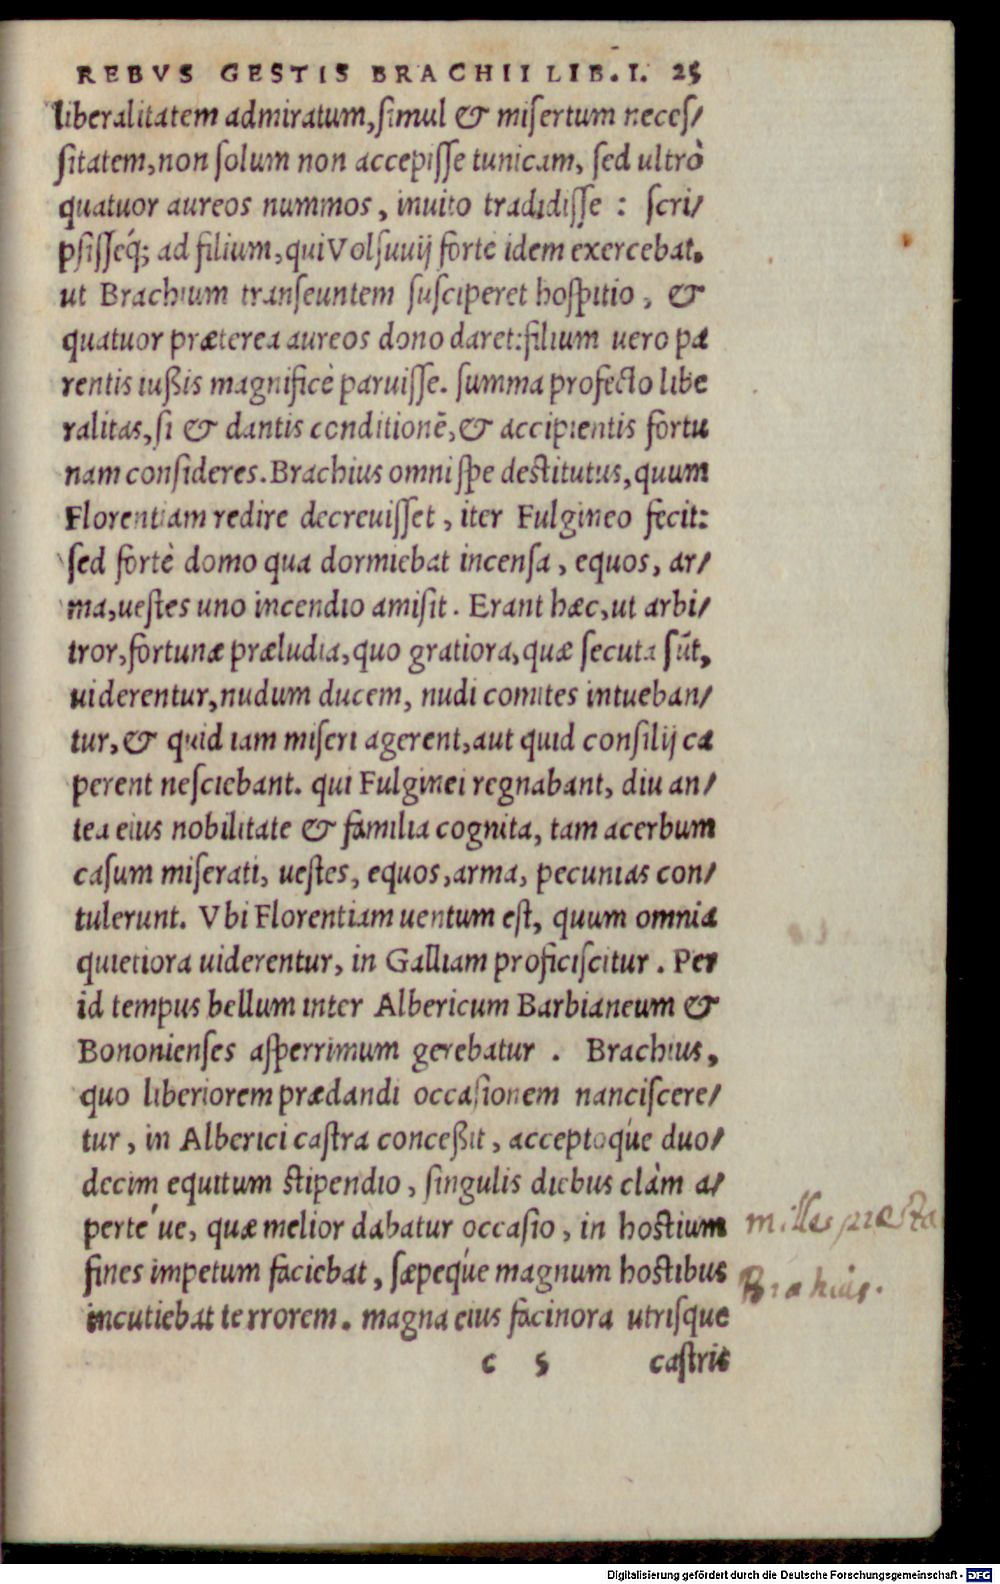 REBVS GESTIS BRACHII LIB. I. 25
liberalitatem admiratum, simul & misertum neces/
sitatem, non solum non accepisse tunicam, sed ultrò
quatuor aureos nummos, inuito tradidisse : scri/
psisseq́; ad filium, qui Volsuuij forte idem exercebat.
ut Brachium transeuntem susciperet hospitio, &
quatuor præterea aureos dono daret: filium uero pa
rentis iußis magnificè paruisse. summa profecto libe
ralitas, si & dantis conditionē, & accipientis fortu
nam consideres. Brachius omni spe destitutus, quum
Florentiam redire decreuisset, iter Fulgineo fecit:
sed fortè domo qua dormiebat incensa, equos, ar/
ma, uestes uno incendio amisit. Erant hæc, ut arbi/
tror, fortunæ præludia, quo gratiora, quæ secuta sūt,
uiderentur, nudum ducem, nudi comites intueban/
tur, & quid iam miseri agerent, aut quid consilij ca
perent nesciebant. qui Fulginei regnabant, diu an/
tea eius nobilitate & familia cognita, tam acerbum
casum miserati, uestes, equos, arma, pecunias con/
tulerunt. Vbi Florentiam uentum est, quum omnia
quietiora uiderentur, in Galliam proficiscitur. Per
id tempus bellum inter Albericum Barbianeum &
Bononienses asperrimum gerebatur. Brachius,
quo liberiorem prædandi occasionem nanciscere/
tur, in Alberici castra conceßit, acceptoq́ue duo/
decim equitum stipendio, singulis diebus clàm a/
perte´ue, quæ melior dabatur occasio, in hostium
fines impetum faciebat, sæpeq́ue magnum hostibus
incutiebat terrorem. magna eius facinora utrisque
c 5 castris
Brahius.
Digitalisierung gefördert durch die Deutsche Forschungsgemeinschaft - DFG